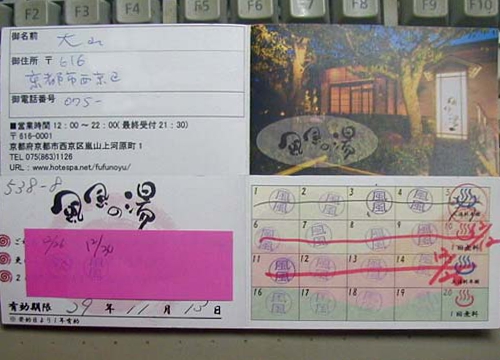 F2 F3 F4 F5 F6 F7 F8 F9 F10
御名前 大山
御住所 〒616
京都市西京区
御電話番号 075-
■営業時間 12:00～22:00(最終受付21:30)
〒616-0001
京都府京都市西京区嵐山上河原町1
TEL 075(863)1126
URL : www.hotespa.net/fufunoyu/
風風の湯
538-8
風風の湯
9/26 12/24
有効期限 29年 11月 13日
※発効日より1年有効
1 2 3 4 5
風風 風風 風風 風風
6 7 8 9 10
風風 風風 風風 風風 1回無料
11 12 13 14 15
風風 風風 風風 風風
16 17 18 19 20
風風 風風 風風 風風 1回無料